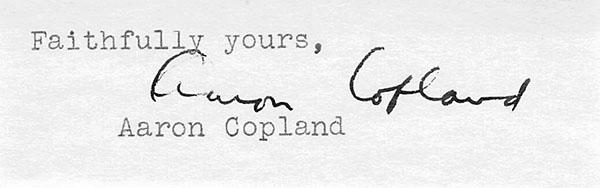 Faithfully yours,
Aaron Copland
Aaron Copland